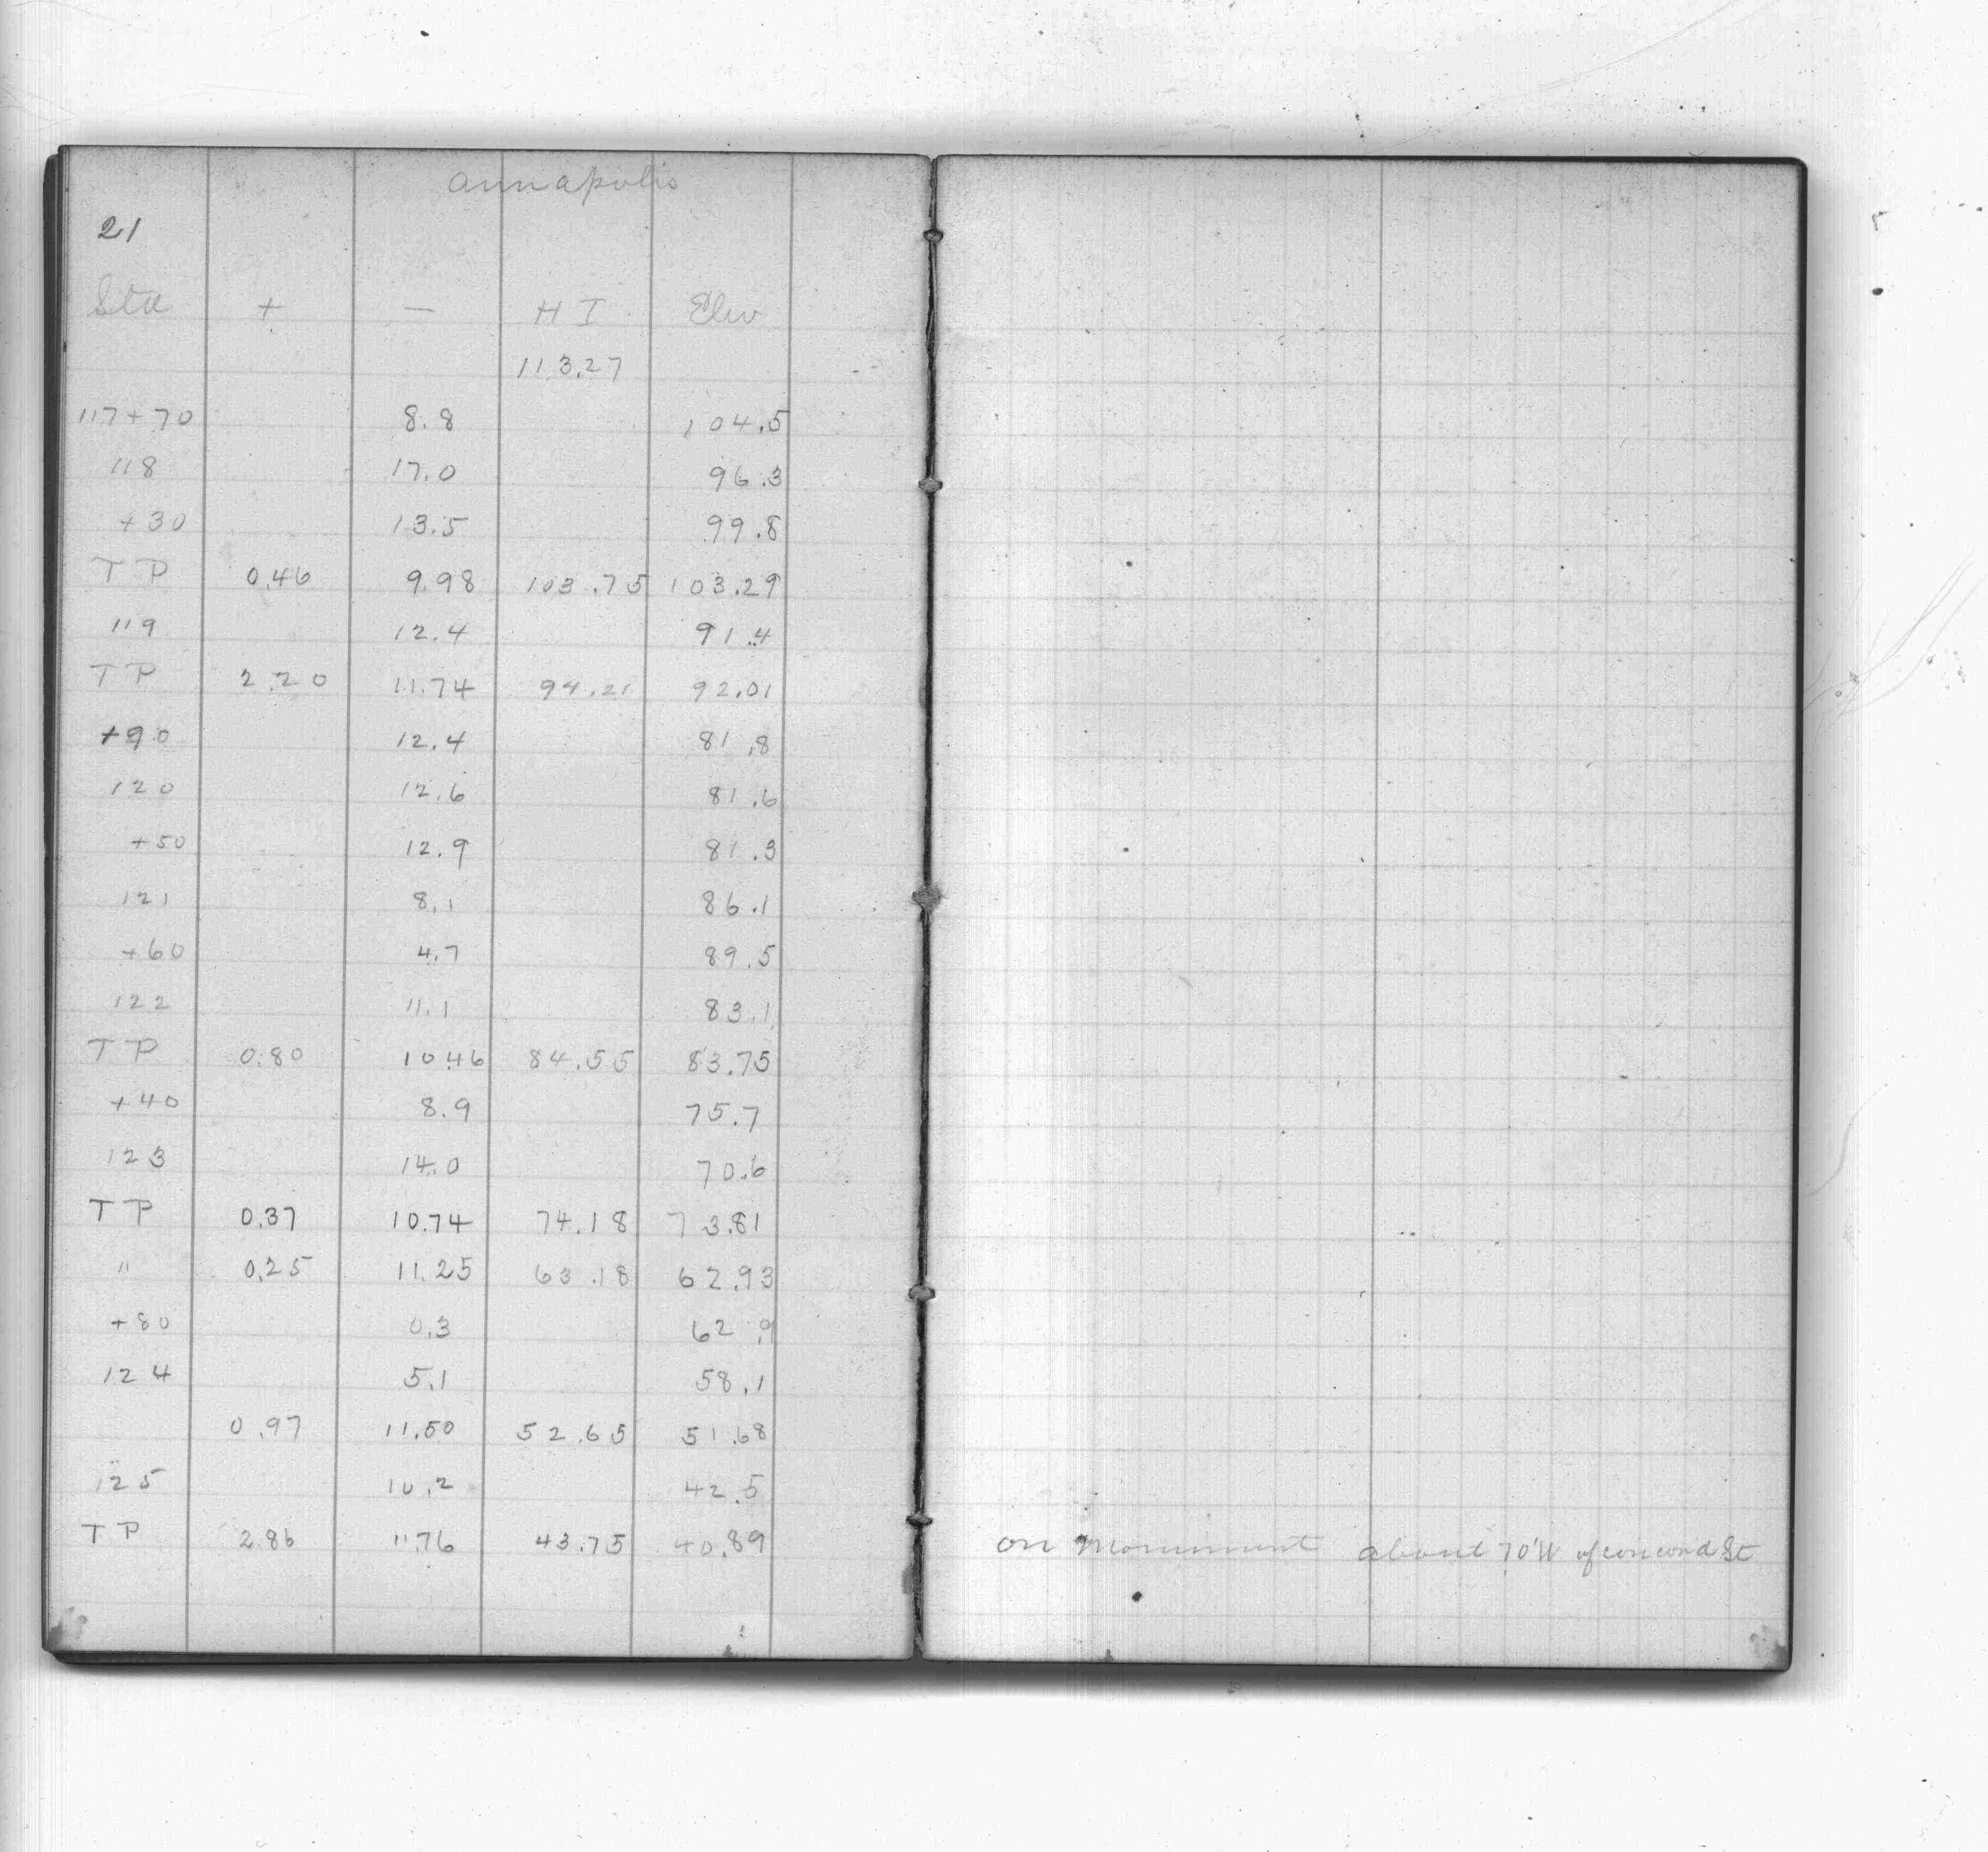 Annapolis
21
Sta + - H I Elev
113.27
117+70 8.8 104.5
118 17.0 96.3
+30 13.5 99.8
T P 0.46 9.98 103.75 103.29
119 12.4 91.4
T P 2.20 11.74 94.21 92.01
+90 12.4 81.8
120 12.6 81.6
+50 12.9 81.3
121 8.1 86.1
+60 4.7 89.5
122 11.1 83.1
T P 0.80 10.46 84.55 83.75
+40 8.9 75.7
123 14.0 70.6
T P 0.37 10.74 74.18 73.81
" 0.25 11.25 63.18 62.93
+80 0.3 62.9
124 5.1 58.1
0.97 11.50 52.65 51.68
125 10.2 42.5
T P 2.86 11.76 43.75 40.89 on Monument about 70'W of concord St